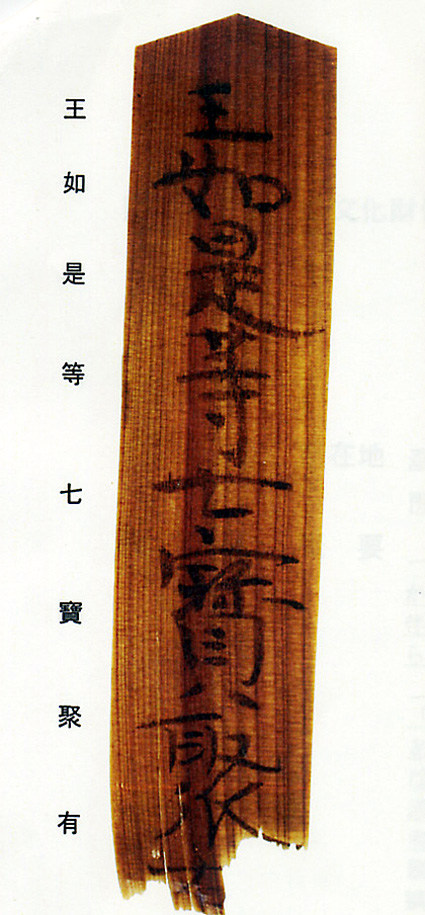 王如是等七寶聚有
王如是等七寶聚